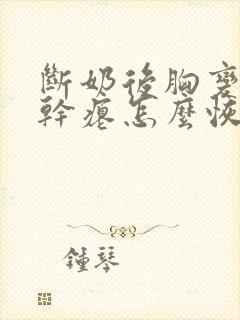 斷奶後胸變
幹癟怎麼恢
鍾琴